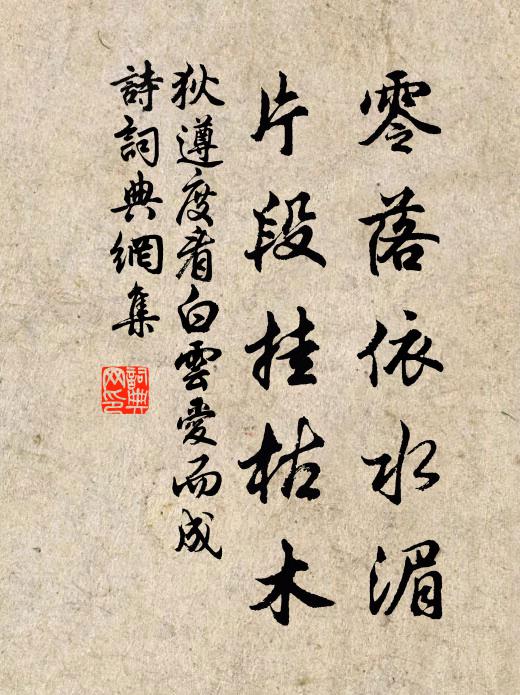 零落依水湄
片段挂枯木
狄遵度看白雲愛而成
詩詞典網集
詞典網印